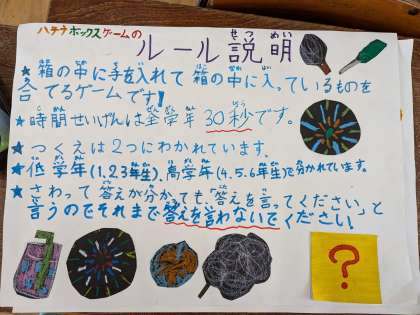 ハテナボックスゲームの
ルール説明
せつめい
★箱の中に手を入れて箱の中に入っているものを
合てるゲームです!
★時間せいげんは全学年30秒です。
★つくえは2つにわかれています。
★低学年(1,2,3年生)、高学年(4,5,6年生)で分かれています。
★さわって答えが分かっても「答えを言ってください」と
言うのでそれまで答えを言わないでください!
?